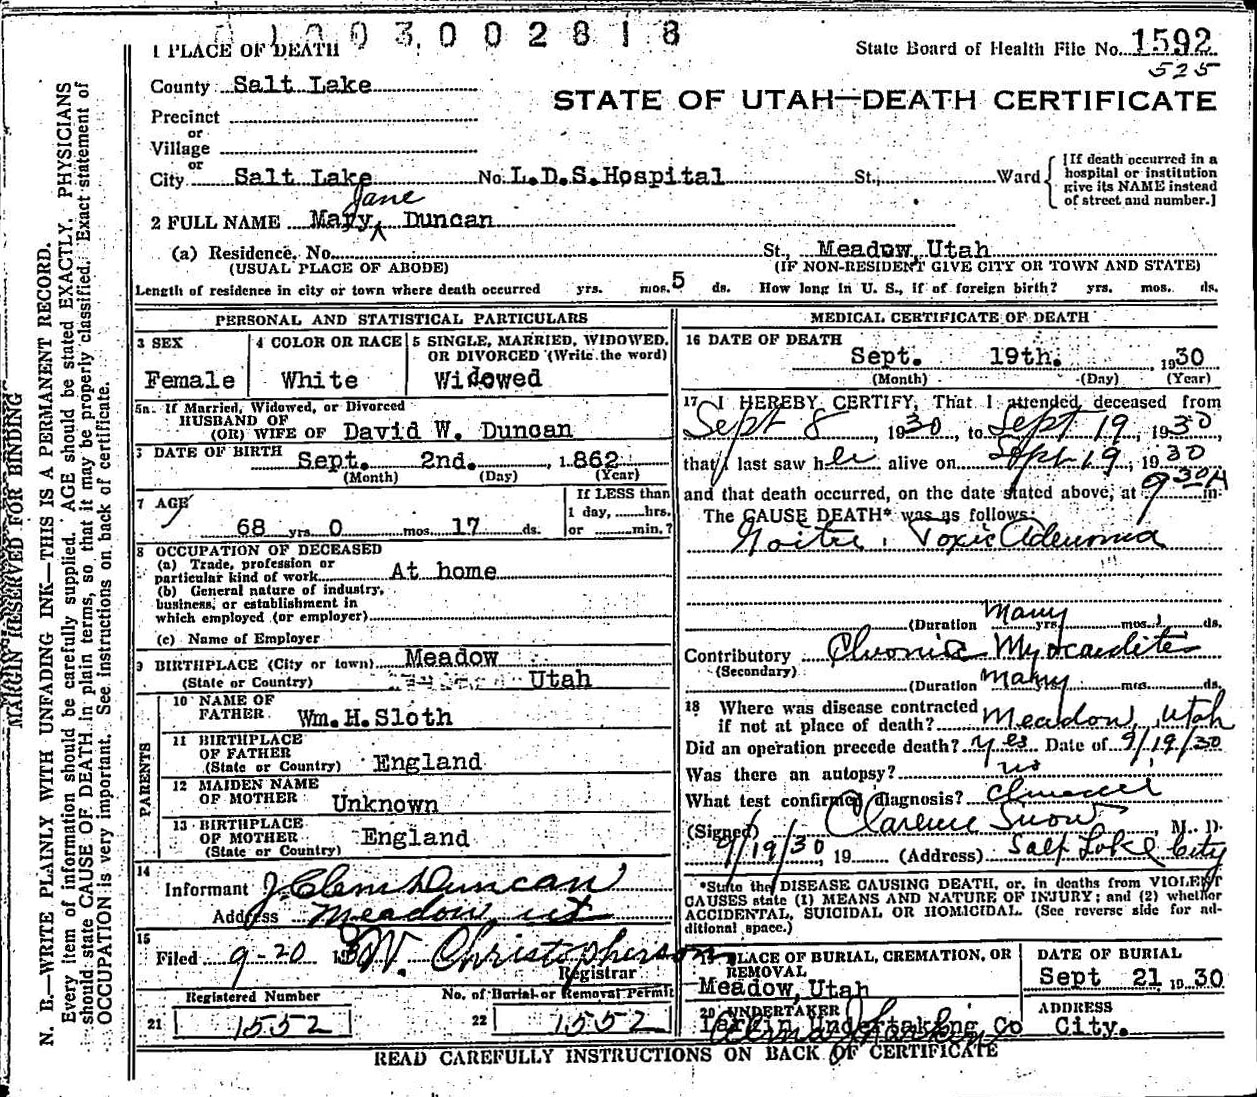 0 1 0 0 3 0 0 2 8 1 8
1 PLACE OF DEATH
State Board of Health File No. 1592
525
County Salt Lake
STATE OF UTAH—DEATH CERTIFICATE
Precinct
or
Village
or
City Salt Lake No. L.D.S.Hospital St., Ward
[If death occurred in a hospital or institution give its NAME instead of street and number.]
Jane
2 FULL NAME Mary Duncan
(a) Residence. No. St., Meadow, Utah
(USUAL PLACE OF ABODE) (IF NON-RESIDENT GIVE CITY OR TOWN AND STATE)
Length of residence in city or town where death occurred yrs. mos. 5 ds. How long in U. S., if of foreign birth? yrs. mos. ds.
PERSONAL AND STATISTICAL PARTICULARS
3 SEX
Female
4 COLOR OR RACE
White
5 SINGLE, MARRIED, WIDOWED,
OR DIVORCED (Write the word)
Widowed
5a. If Married, Widowed, or Divorced
HUSBAND OF
(OR) WIFE OF David W. Duncan
DATE OF BIRTH Sept. 2nd. , 1862
(Month) (Day) (Year)
7 AGE
68 yrs. 0 mos. 17 ds.
If LESS than
1 day, hrs.
or min.?
8 OCCUPATION OF DECEASED
(a) Trade, profession or
particular kind of work At home
(b) General nature of industry,
business, or establishment in
which employed (or employer)
(c) Name of Employer
9 BIRTHPLACE (City or town) Meadow
(State or Country) Utah
PARENTS
10 NAME OF
FATHER Wm.H.Sloth
11 BIRTHPLACE
OF FATHER
(State or Country) England
12 MAIDEN NAME
OF MOTHER Unknown
13 BIRTHPLACE
OF MOTHER
(State or Country) England
14
Informant J. Clem Duncan
Address Meadow, ut
15
Filed 9-20 W. Christopherson
Registrar
Registered Number
21 1552
No. of Burial or Removal Permit
22 1552
MEDICAL CERTIFICATE OF DEATH
16 DATE OF DEATH
Sept. 19th. 1930
(Month) (Day) (Year)
17 I HEREBY CERTIFY, That I attended deceased from
Sept 8, 1930, to Sept 19, 1930,
that I last saw her alive on Sept 19, 1930
and that death occurred, on the date stated above, at 9 30 A m.
The CAUSE DEATH* was as follows:
Goitre, Toxic Adenoma
(Duration Many yrs. mos. ds.
Contributory Chronic Myocarditis
(Secondary)
(Duration Many yrs. mos. ds.
18 Where was disease contracted
if not at place of death? Meadow, Utah
Did an operation precede death? yes Date of 9/19/30
Was there an autopsy? no
What test confirmed diagnosis? Clinical
(Signed) Clarence Snow, M. D.
9/19/30, 19 (Address) Salt Lake City
*State the DISEASE CAUSING DEATH, or, in deaths from VIOLENT
CAUSES state (1) MEANS AND NATURE OF INJURY; and (2) whether
ACCIDENTAL, SUICIDAL OR HOMICIDAL. (See reverse side for ad-
ditional space.)
PLACE OF BURIAL, CREMATION, OR
REMOVAL
Meadow, Utah
DATE OF BURIAL
Sept 21 1930
20 UNDERTAKER
Larkin Undertaking Co
ADDRESS
City.
READ CAREFULLY INSTRUCTIONS ON BACK OF CERTIFICATE
MARGIN RESERVED FOR BINDING
N. B.—WRITE PLAINLY WITH UNFADING INK—THIS IS A PERMANENT RECORD.
Every item of information should be carefully supplied. AGE should be stated EXACTLY. PHYSICIANS
should state CAUSE OF DEATH in plain terms, so that it may be properly classified. Exact statement of
OCCUPATION is very important. See instructions on back of certificate.